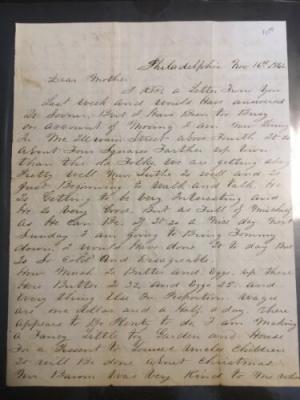 Philadelphia Nov 16th
Dear Mother
I a Letter From You
Last Week and Would Have answered
It Sooner But I Have Been So Busy
on account of Moving I am now living
In Mc Street above Fourth It is
about Four Squares Farther up Town
than the old We are getting along
Pretty well is well and is
Just Beginning to Walk and talk He
is Getting to be very Interesting and
He is very Good But as Full of Mischief
as He can Be If It is a Nice day Next
Sunday I am going to Bring Tommy
down I would Have done It to day But
It Is Cold and Disagreeable
How Much Is Butter and Eggs up there
Here Butter Is 32 and Eggs 25 and
Every thing Else In Proportion Wages
are one dollar and a Half a day there
appears to Be Plenty to do I am Making
a Fancy Little toy Garden and House
For a Present to Children
It will Be done about Christmas
Was very Kind to Me